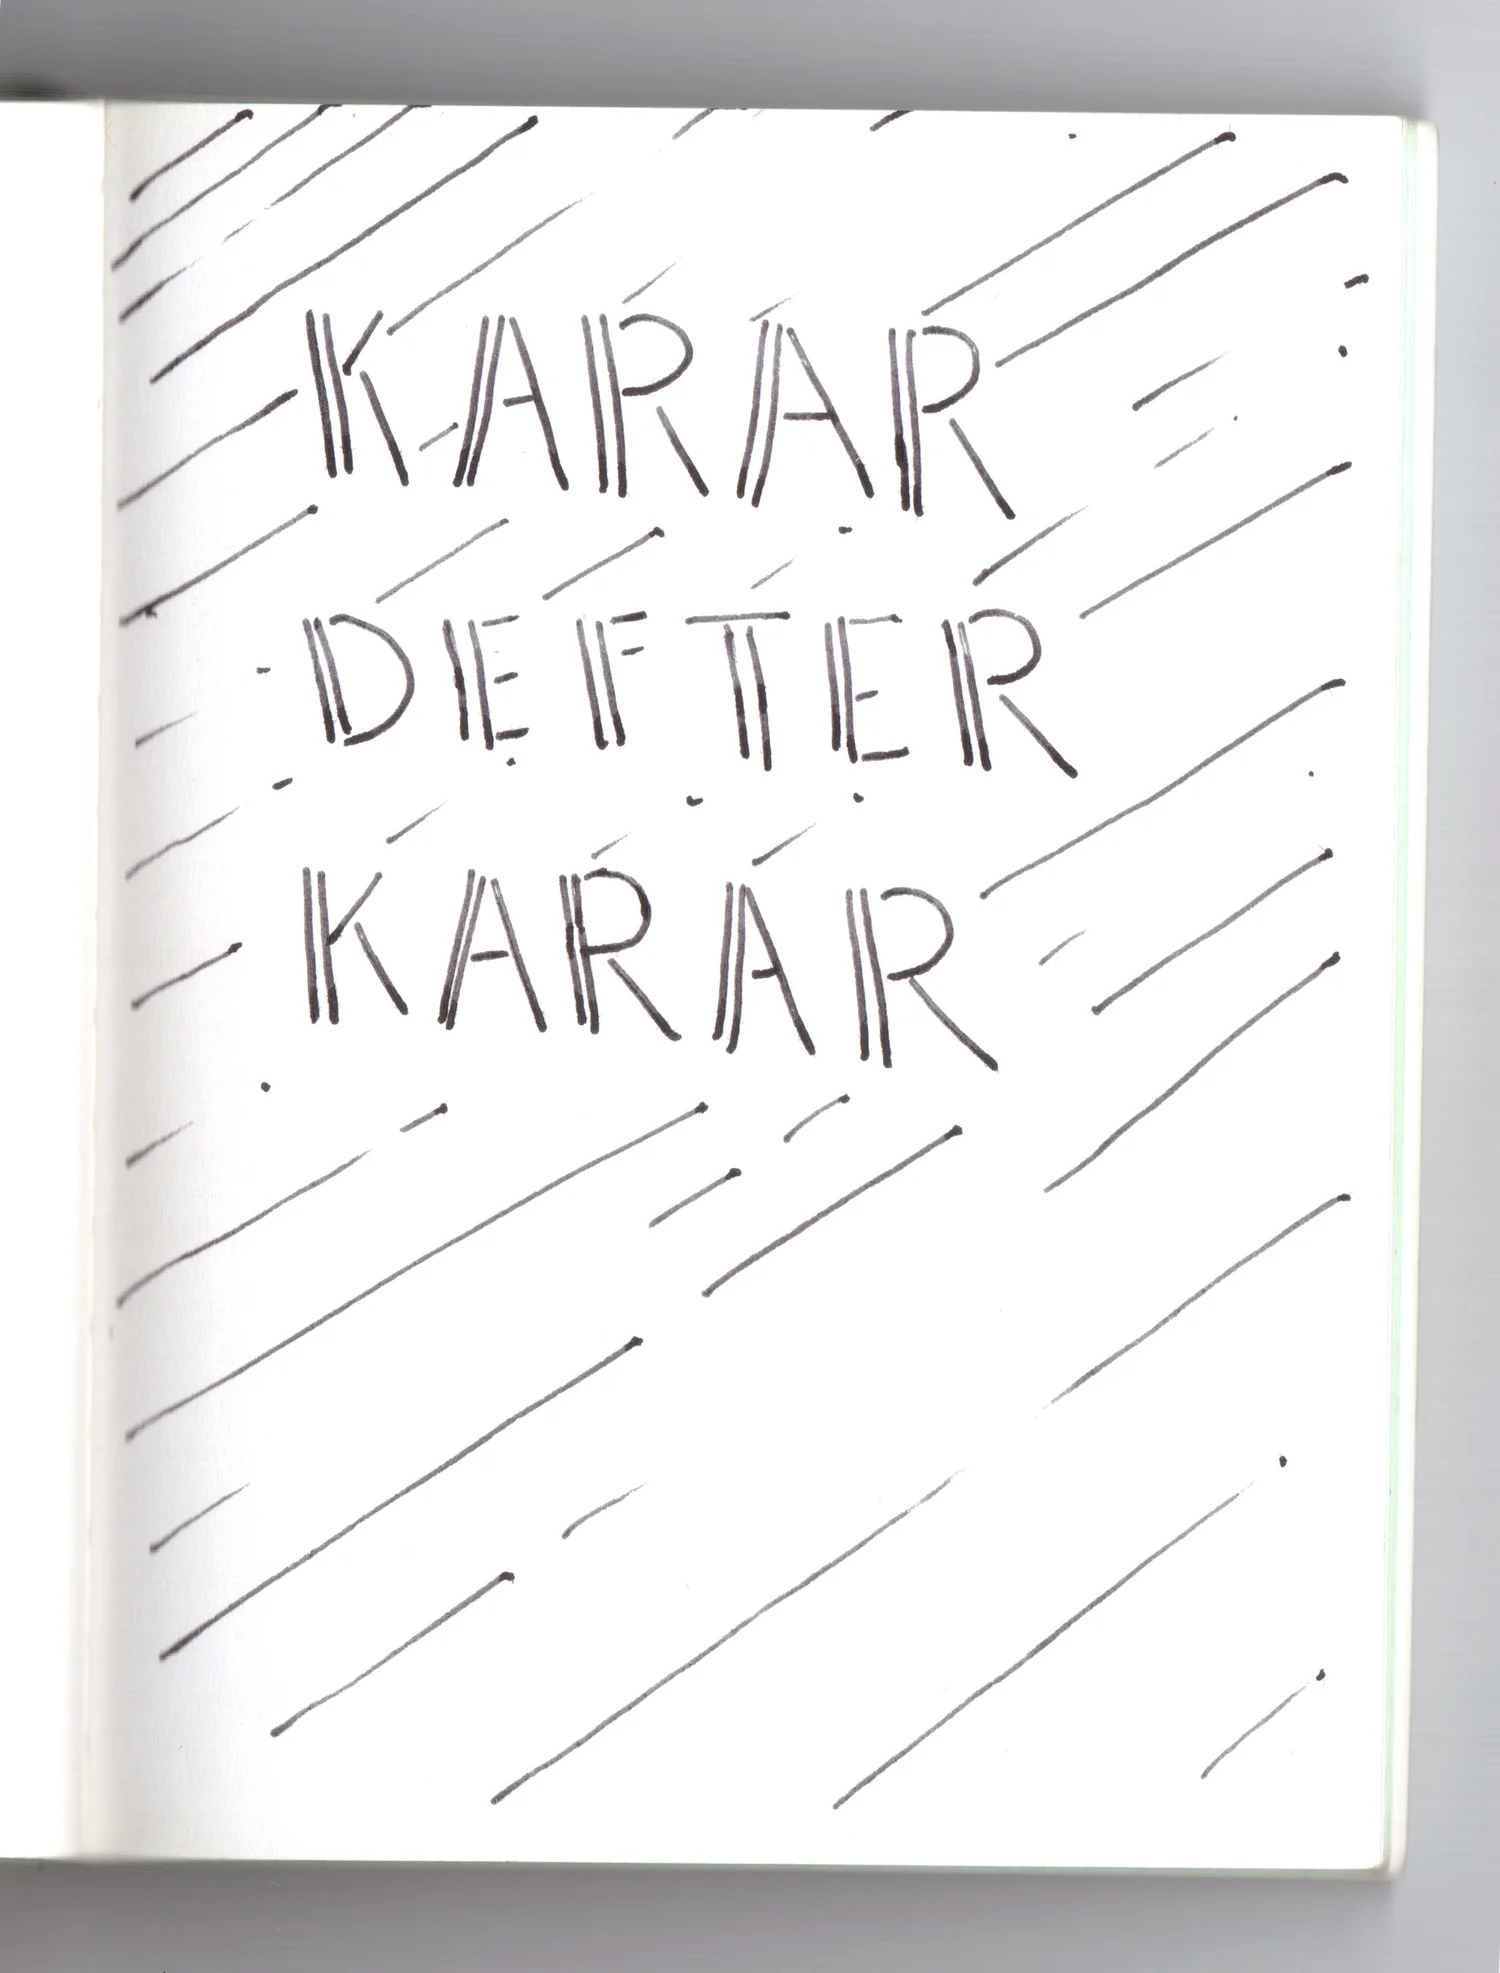 KARAR
DEFTER
KARAR